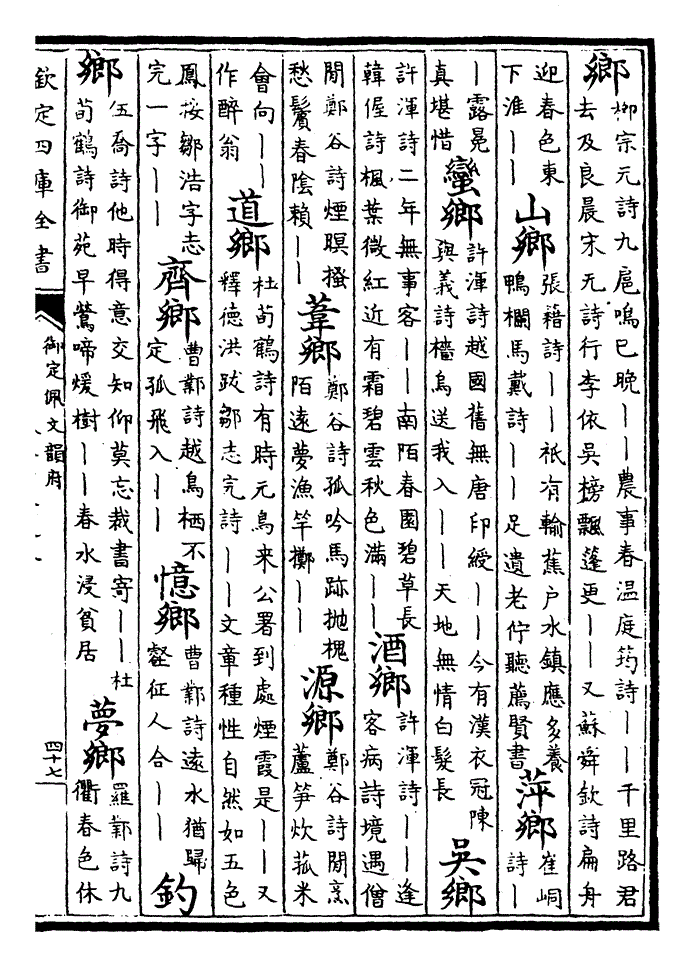 鄉 柳宗元詩九扈鳴已晚丨丨農事春温庭筠詩丨丨千里路君
去及良晨宋无詩行李依吳榜飄蓬更丨丨又蘇舜欽詩扁舟
迎春色東
下淮丨丨 山鄉 張籍詩丨丨祇有輸蕉户水鎮應多養
鴨欄馬戴詩丨丨足遺老佇聽薦賢書 萍鄉 崔峒詩丨
丨露冕
真堪惜 蠻鄉 許渾詩越國舊無唐印綬丨丨今有漢衣冠陳
與義詩檣烏送我入丨丨天地無情白髮長 吳鄉
許渾詩二年無事客丨丨南陌春園碧草長
韓偓詩楓葉微紅近有霜碧雲秋色滿丨丨 酒鄉 許渾詩丨丨逢
客病詩境遇僧
閒鄭谷詩煙暝搔
愁鬢春陰賴丨丨 葦鄉 鄭谷詩孤吟馬跡抛槐
陌遠夢漁竿擲丨丨 源鄉 鄭谷詩閒烹
蘆笋炊菰米
會向丨丨
作醉翁 道鄉 杜荀鶴詩有時元鳥来公署到處煙霞是丨丨又
釋德洪跋鄒志完詩丨丨文章種性自然如五色
鳳按鄒浩字志
完一字丨丨 齊鄉 曹鄴詩越鳥栖不
定孤飛入丨丨 憶鄉 曹鄴詩遠水猶歸
壑征人合丨丨 釣
鄉 伍喬詩他時得意交知仰莫忘裁書寄丨丨杜
荀鶴詩御苑早鶯啼煖樹丨丨春水浸貧居 夢鄉 羅鄴詩九
衢春色休
欽定四庫全書
御定佩文韻府
四十七